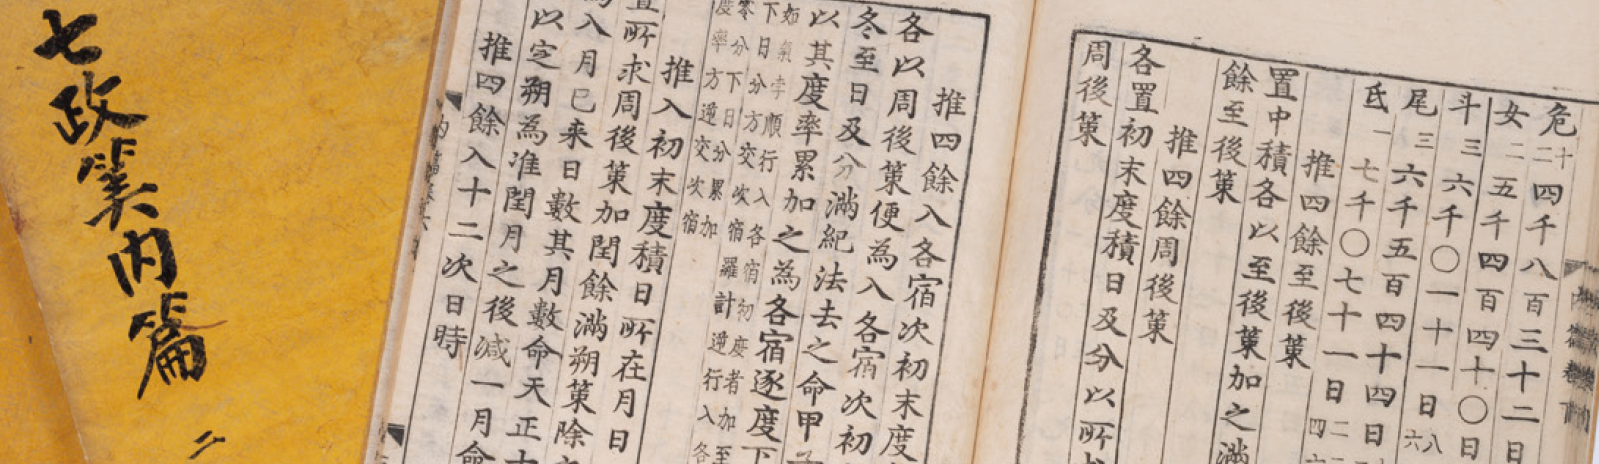 危 十二 四千八百三十二日
女 二 五千四百四十〇日
斗 三 六千〇一十一日 八六
尾 三 六千五百四十四日
氐 一 七千〇七十一日
推四餘至後策
置中積各以至後策加之滿
餘至後策
推四餘周後策
各置初末度積日及分以所
周後策
推四餘入各宿次初末度
各以周後策便為入各宿次初
冬至日及分滿紀法去之命甲子
以其度率累加之為各宿逐度下
如氣孛順行入各宿初度者加至
下日分方交次宿羅計逆行入各
零分下日分累加
度率方逆交次宿
推入初末度積日所在月日
置所求周後策加閏餘滿朔策除
為入月已来日數其月數命天正十
以定朔為准閏月之後減一月命
推四餘入十二次日時
七政筭内篇 二